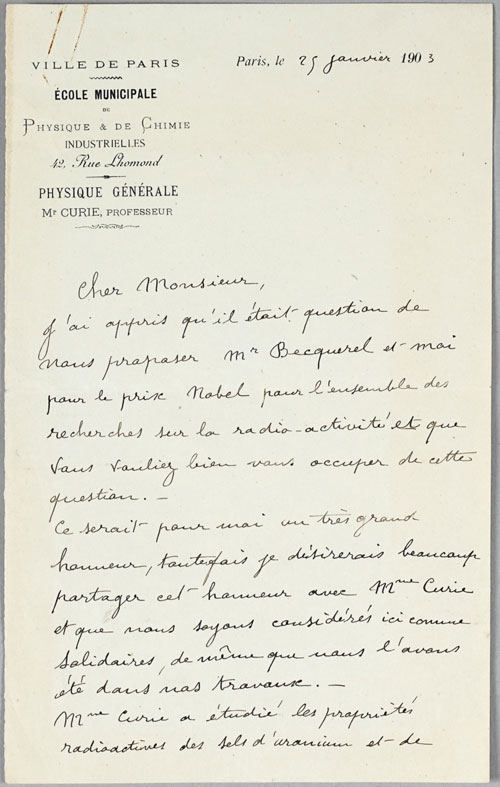 VILLE DE PARIS
ÉCOLE MUNICIPALE
DE
PHYSIQUE & DE CHIMIE
INDUSTRIELLES
42, Rue Lhomond
PHYSIQUE GÉNÉRALE
Mr CURIE, PROFESSEUR
Paris, le 25 janvier 1903
Cher Monsieur,
J'ai appris qu'il était question de
nous proposer Mr Becquerel et moi
pour le prix Nobel pour l'ensemble des
recherches sur la radio-activité et que
vous vouliez bien vous occuper de cette
question. —
Ce serait pour moi un très grand
honneur, toutefois je désirerais beaucoup
partager cet honneur avec Mme Curie
et que nous soyons considérés ici comme
solidaires, de même que nous l'avons
été dans nos travaux. —
Mme Curie a étudié les propriétés
radioactives des sels d'uranium et de